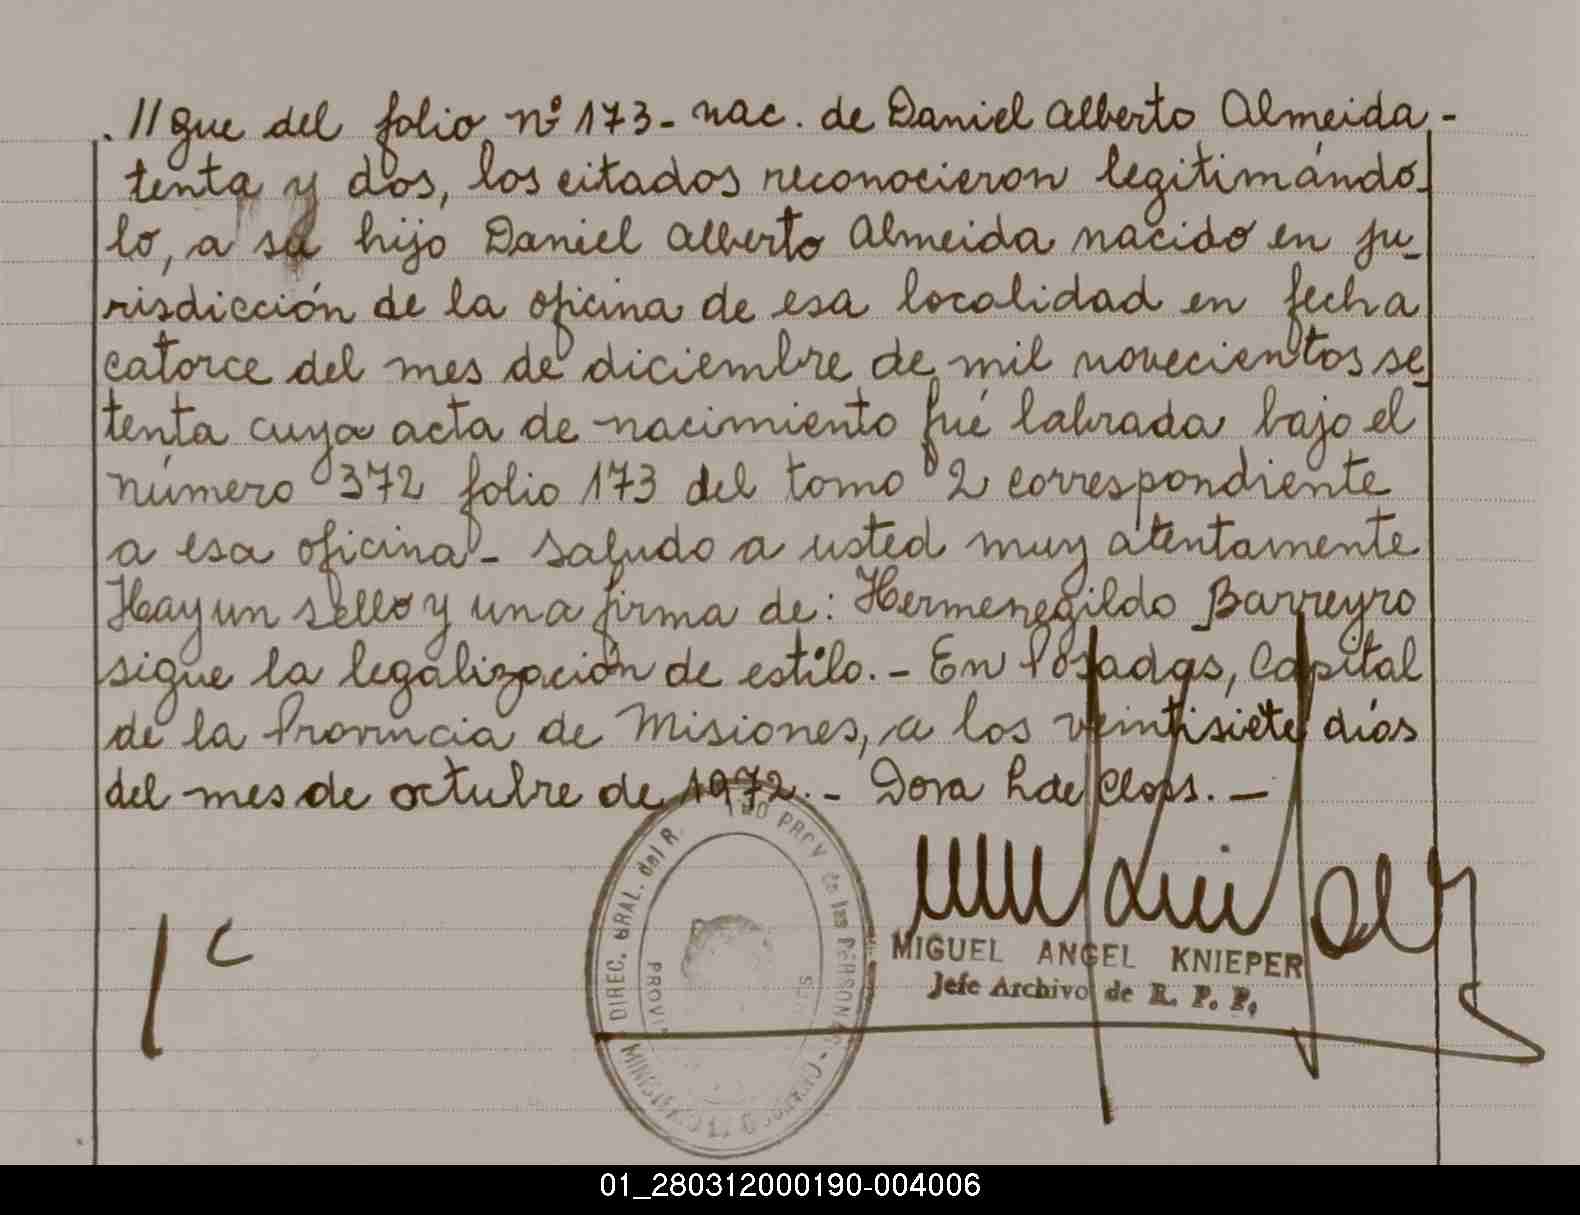 . //gue del folio nº 173- nac. de Daniel Alberto Almeida -
tenta y dos, los citados reconocieron legitimándo-
lo, a su hijo Daniel Alberto Almeida nacido en ju-
risdicción de la oficina de esa localidad en fecha
catorce del mes de diciembre de mil novecientos se-
tenta cuya acta de nacimiento fué labrada bajo el
número 372 folio 173 del tomo 2 correspondiente
a esa oficina - Saludo a usted muy atentamente
Hay un sello y una firma de: Hermenegildo Barreyro
sigue la legalización de estilo. - En Posadas, Capital
de la Provincia de Misiones, a los veintisiete días
del mes de octubre de 1972. - Dora h de Closs. -
DIREC. GRAL. del R. PROV de las PERSONAS
MIGUEL ANGEL KNIEPER
Jefe Archivo de R. P. P.
01_280312000190-004006